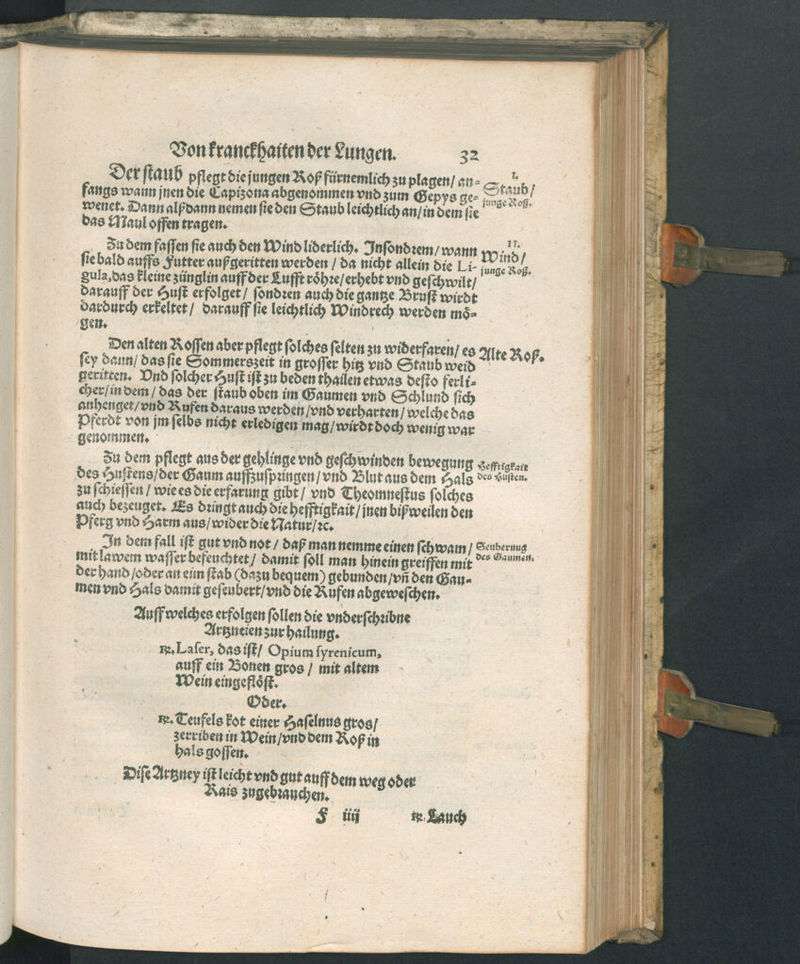 Von kranckhaiten der Lungen. 32
Der staub pflegt die jungen Roß fürnemlich zu plagen/ an-
fangs wann jnen die Capizona abgenommen vnd zum Gepys ge-
wenet. Dann alßdann nemen sie den Staub leichtlich an/ in dem sie
das Maul offen tragen.
I.
Staub/
junge Roß.
Zu dem fassen sie auch den Wind liderlich. Insondrem/ wann
sie bald auffs Futter außgeritten werden / da nicht allein die Li-
gula, das kleine zünglin auff der Lufft röhre/ erhebt vnd geschwilt/
darauff der Hust erfolget/ sondren auch die gantze Brust wirdt
dardurch erkeltet/ darauff sie leichtlich Windrech werden mö-
gen.
II.
Wind/
junge Roß.
Den alten Rossen aber pflegt solches selten zu widerfaren/ es
sey dann/ das sie Sommerszeit in grosser hitz vnd Staub weid
geritten. Vnd solcher Hust ist zu beden thailen etwas desto ferli-
cher/ in dem / das der staub oben im Gaumen vnd Schlund sich
anhenget/ vnd Rufen daraus werden/ vnd verharten/ welche das
Pferdt von jm selbs nicht erledigen mag/ wirdt doch wenig war
genommen.
Alte Roß.
Zu dem pflegt aus der gehlinge vnd geschwinden bewegung
des Hustens/ der Gaum auffzuspringen/ vnd Blut aus dem Hals
zu schiessen / wie es die erfarung gibt/ vnd Theomnestus solches
auch bezeuget. Es dringt auch die hefftigkait/ jnen bißweilen den
Pferg vnd Harm aus/ wider die Natur/ ꝛc.
Hefftigkait
des Husten.
In dem fall ist gut vnd not / daß man nemme einen schwam/
mit lawem wasser befeuchtet/ damit soll man hinein greiffen mit
der hand/ oder an eim stab (dazu bequem) gebunden/ vñ den Gau-
men vnd Hals damit geseubert/ vnd die Rufen abgeweschen.
Seuberung
des Gaumen.
Auff welches erfolgen sollen die vnderschribne
Artzneien zur hailung.
℞. Laser, das ist/ Opium syrenicum,
auff ein Bonen gros / mit altem
Wein eingeflöst.
Oder.
℞. Teufels kot einer Haselnus gros/
zerriben in Wein/ vnd dem Roß in
hals gossen.
Dise Artzney ist leicht vnd gut auff dem weg oder
Rais zugebrauchen.
F iiij ℞. Lauch